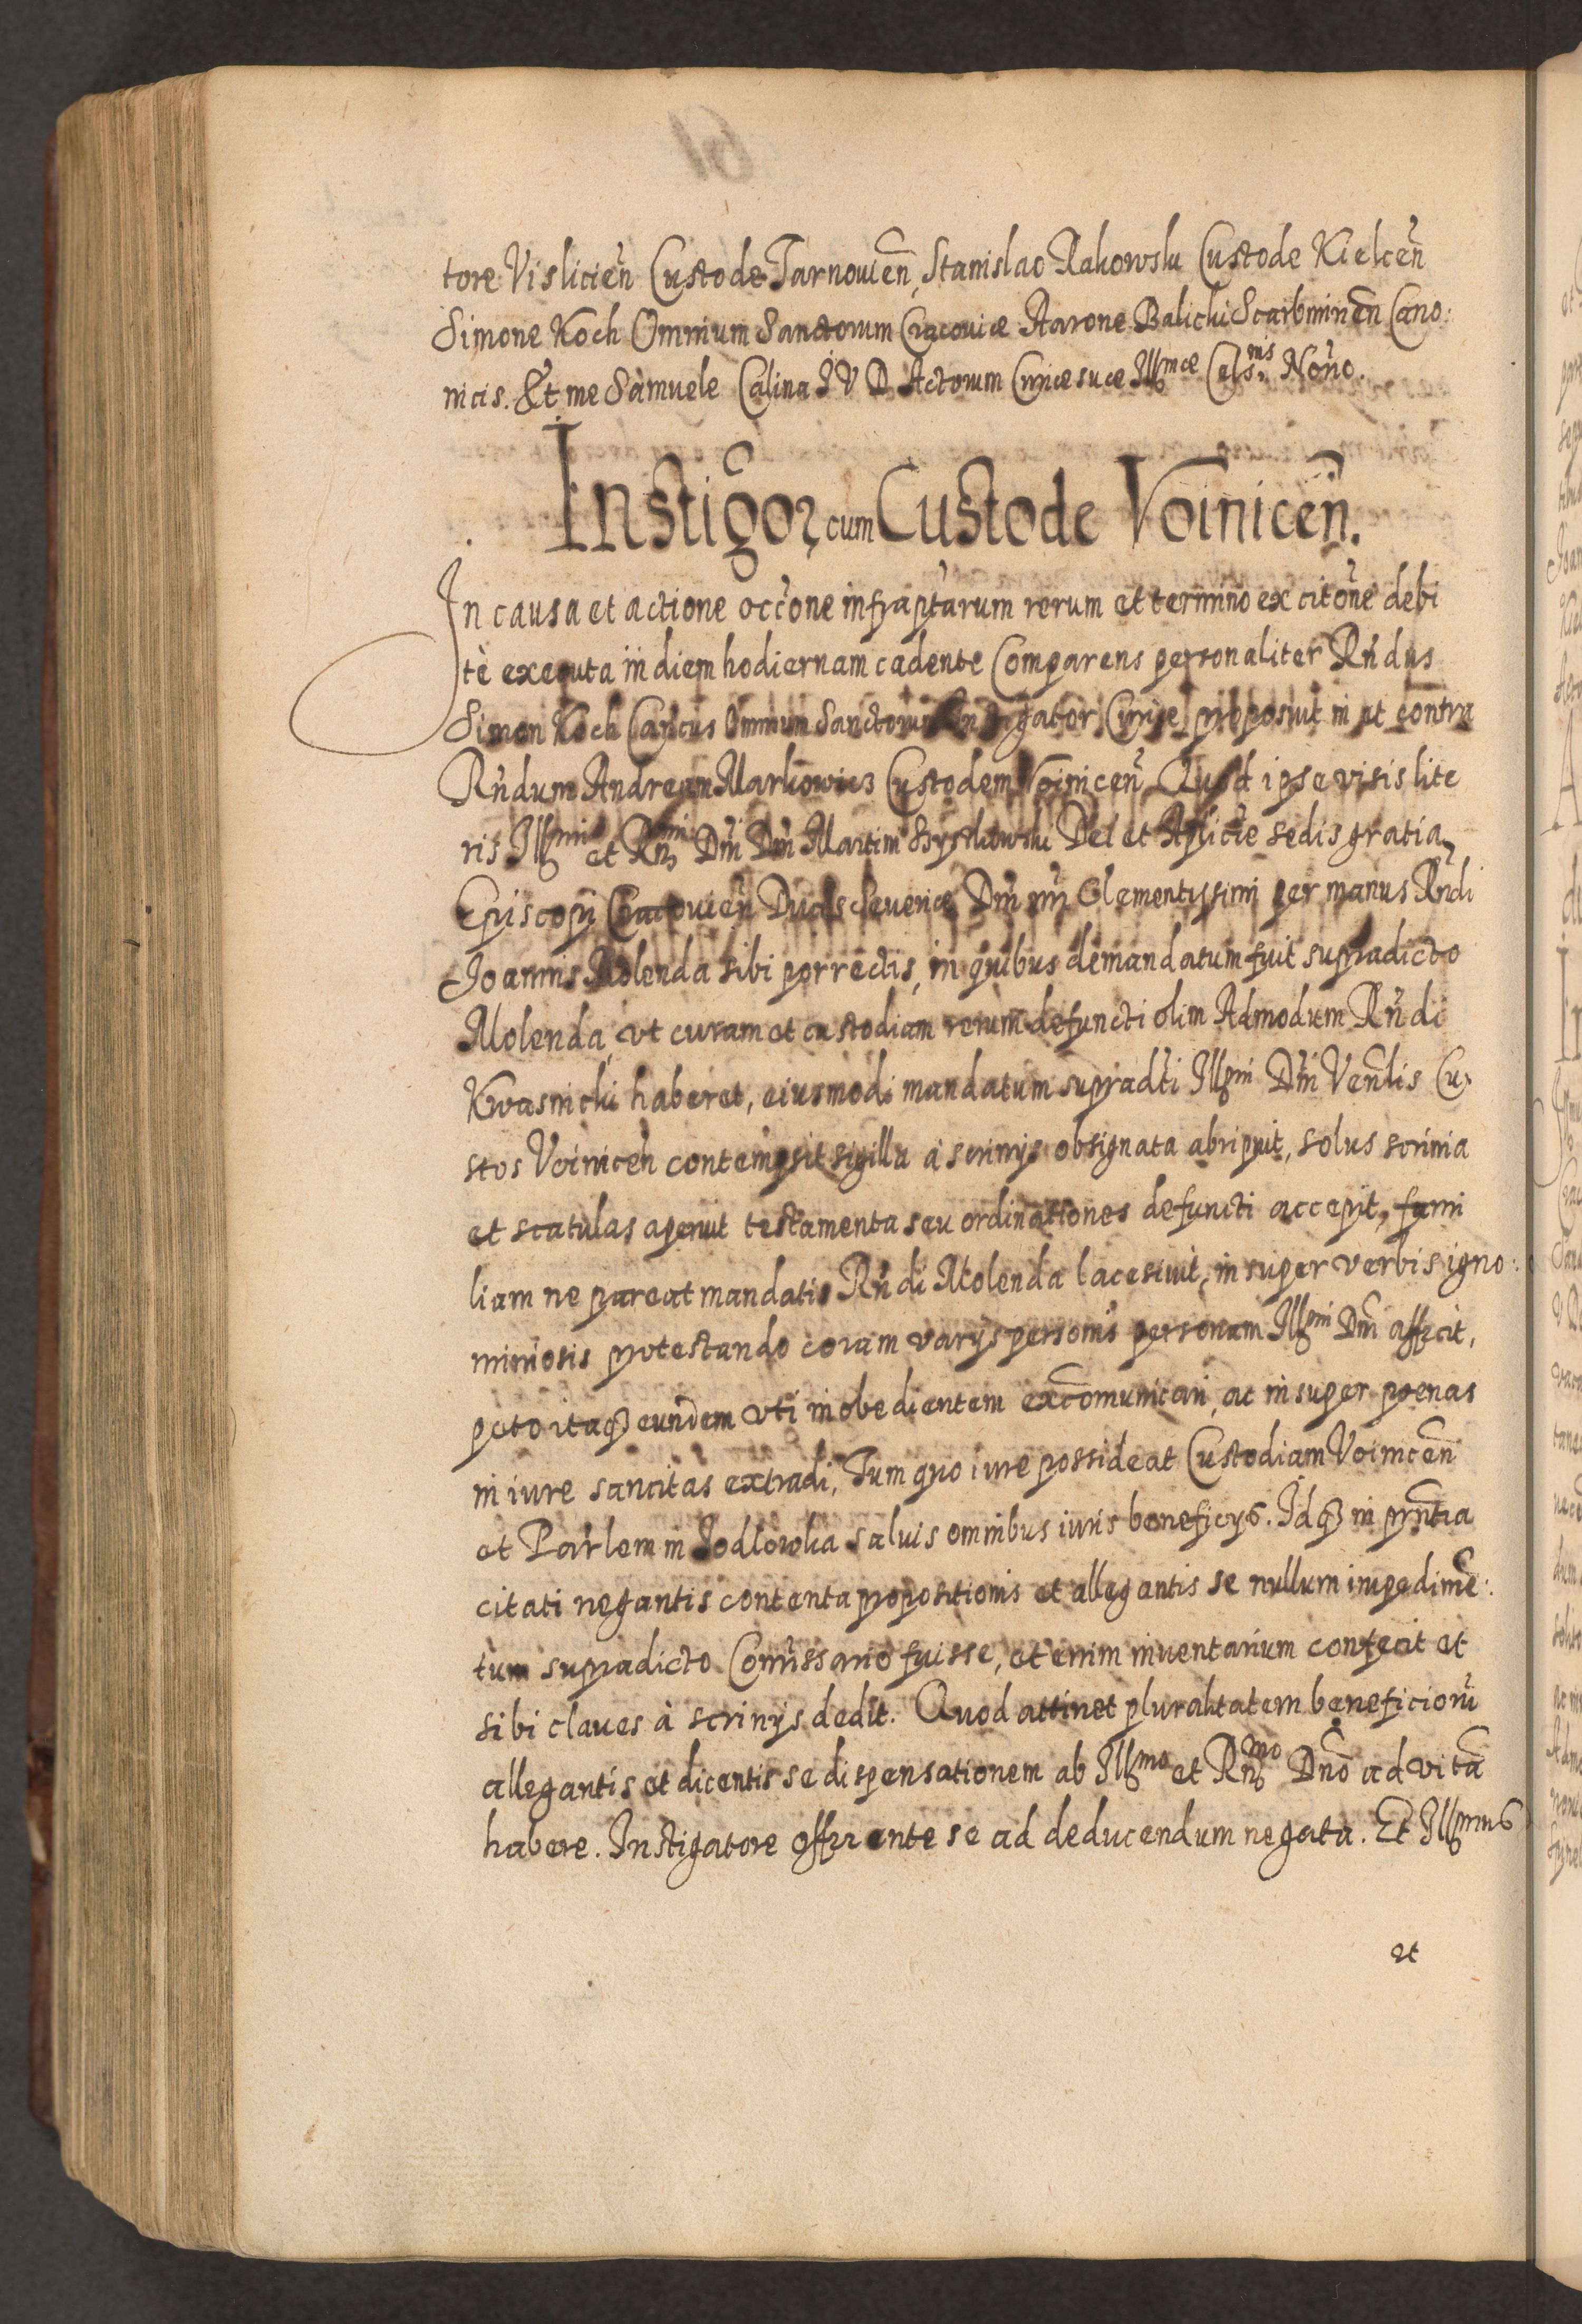 tore Vislicien̄ Custode Tarnovien̄, Stanislao Rakowski Custode Kielcen̄
Simone Koch Omnium Sanctorum Cracoviæ Aarone Balicki Scarbmirien̄ Cano:
nicis. Et me Samuele Calina I V D Actorum Curiæ suæ Illmæ Cels:nis Nōrio.
Instigōr cum Custode Voinicen̄.
In causa et actione occōne infrap̄tarum rerum et termino ex citōne debi
tè executa in diem hodiernam cadente Comparens personaliter Rn̄dus
Simon Koch Can̄cus Omnium Sanctorum Instigator Curiæ proposuit in et contra
Rn̄dum Andream Markowicz Custodem Voinicen̄ Quod ipse visis lite
ris Illmi et Rn̄mi Dn̄i Dn̄i Martini Szyszkowski Dei et Aplicæ sedis gratia
Episcopi Cracovien̄ Ducis Severiæ Dn̄i n̄ri Clementissimi per manus Rn̄di
Joannis Molenda sibi porrectis, in quibus demandatum fuit supradicto
Molenda, vt curam et custodiam rerum defuncti olim Admodum Rn̄di
Kwasnicki haberet, eiusmodi mandatum supradc̄ti Illmi Dn̄i Ven̄lis Cu:
stos Voinicen̄ contempsit sigilla à scrinijs obsignata abripuit, solus scrinia
et scatulas aperuit testamenta seu ordinationes defuncti accepit, fami
liam ne pareat mandatis Rn̄di Molenda lacesivit, insuper verbis igno:
miniosis protestando coram varijs personis personam Illmi Dn̄i affecit,
peto itaq3 eundem vti inobedientem excōmunicari, ac insuper poenas
in iure sancitas extradi, Tum quo iure possideat Custodiam Voinicen̄
et Par̄lem in Jodlowka salvis omnibus iuris beneficijs. Idq3 in prn̄tia
citati negantis contenta propositionis et allegantis se nullum impedimē:
tum supradicto Com̄issario fuisse, et enim inventarium confecit et
sibi claves à scrinijs dedit. Quod attinet pluralitatem beneficiorū
allegantis et dicentis se dispensationem ab Illmo et Rn̄mo Dn̄o ad vitā
habere. Instigatore offerente se ad deducendum negata. Et Illmus
et